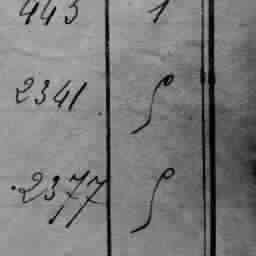 443 1
2341.
2377